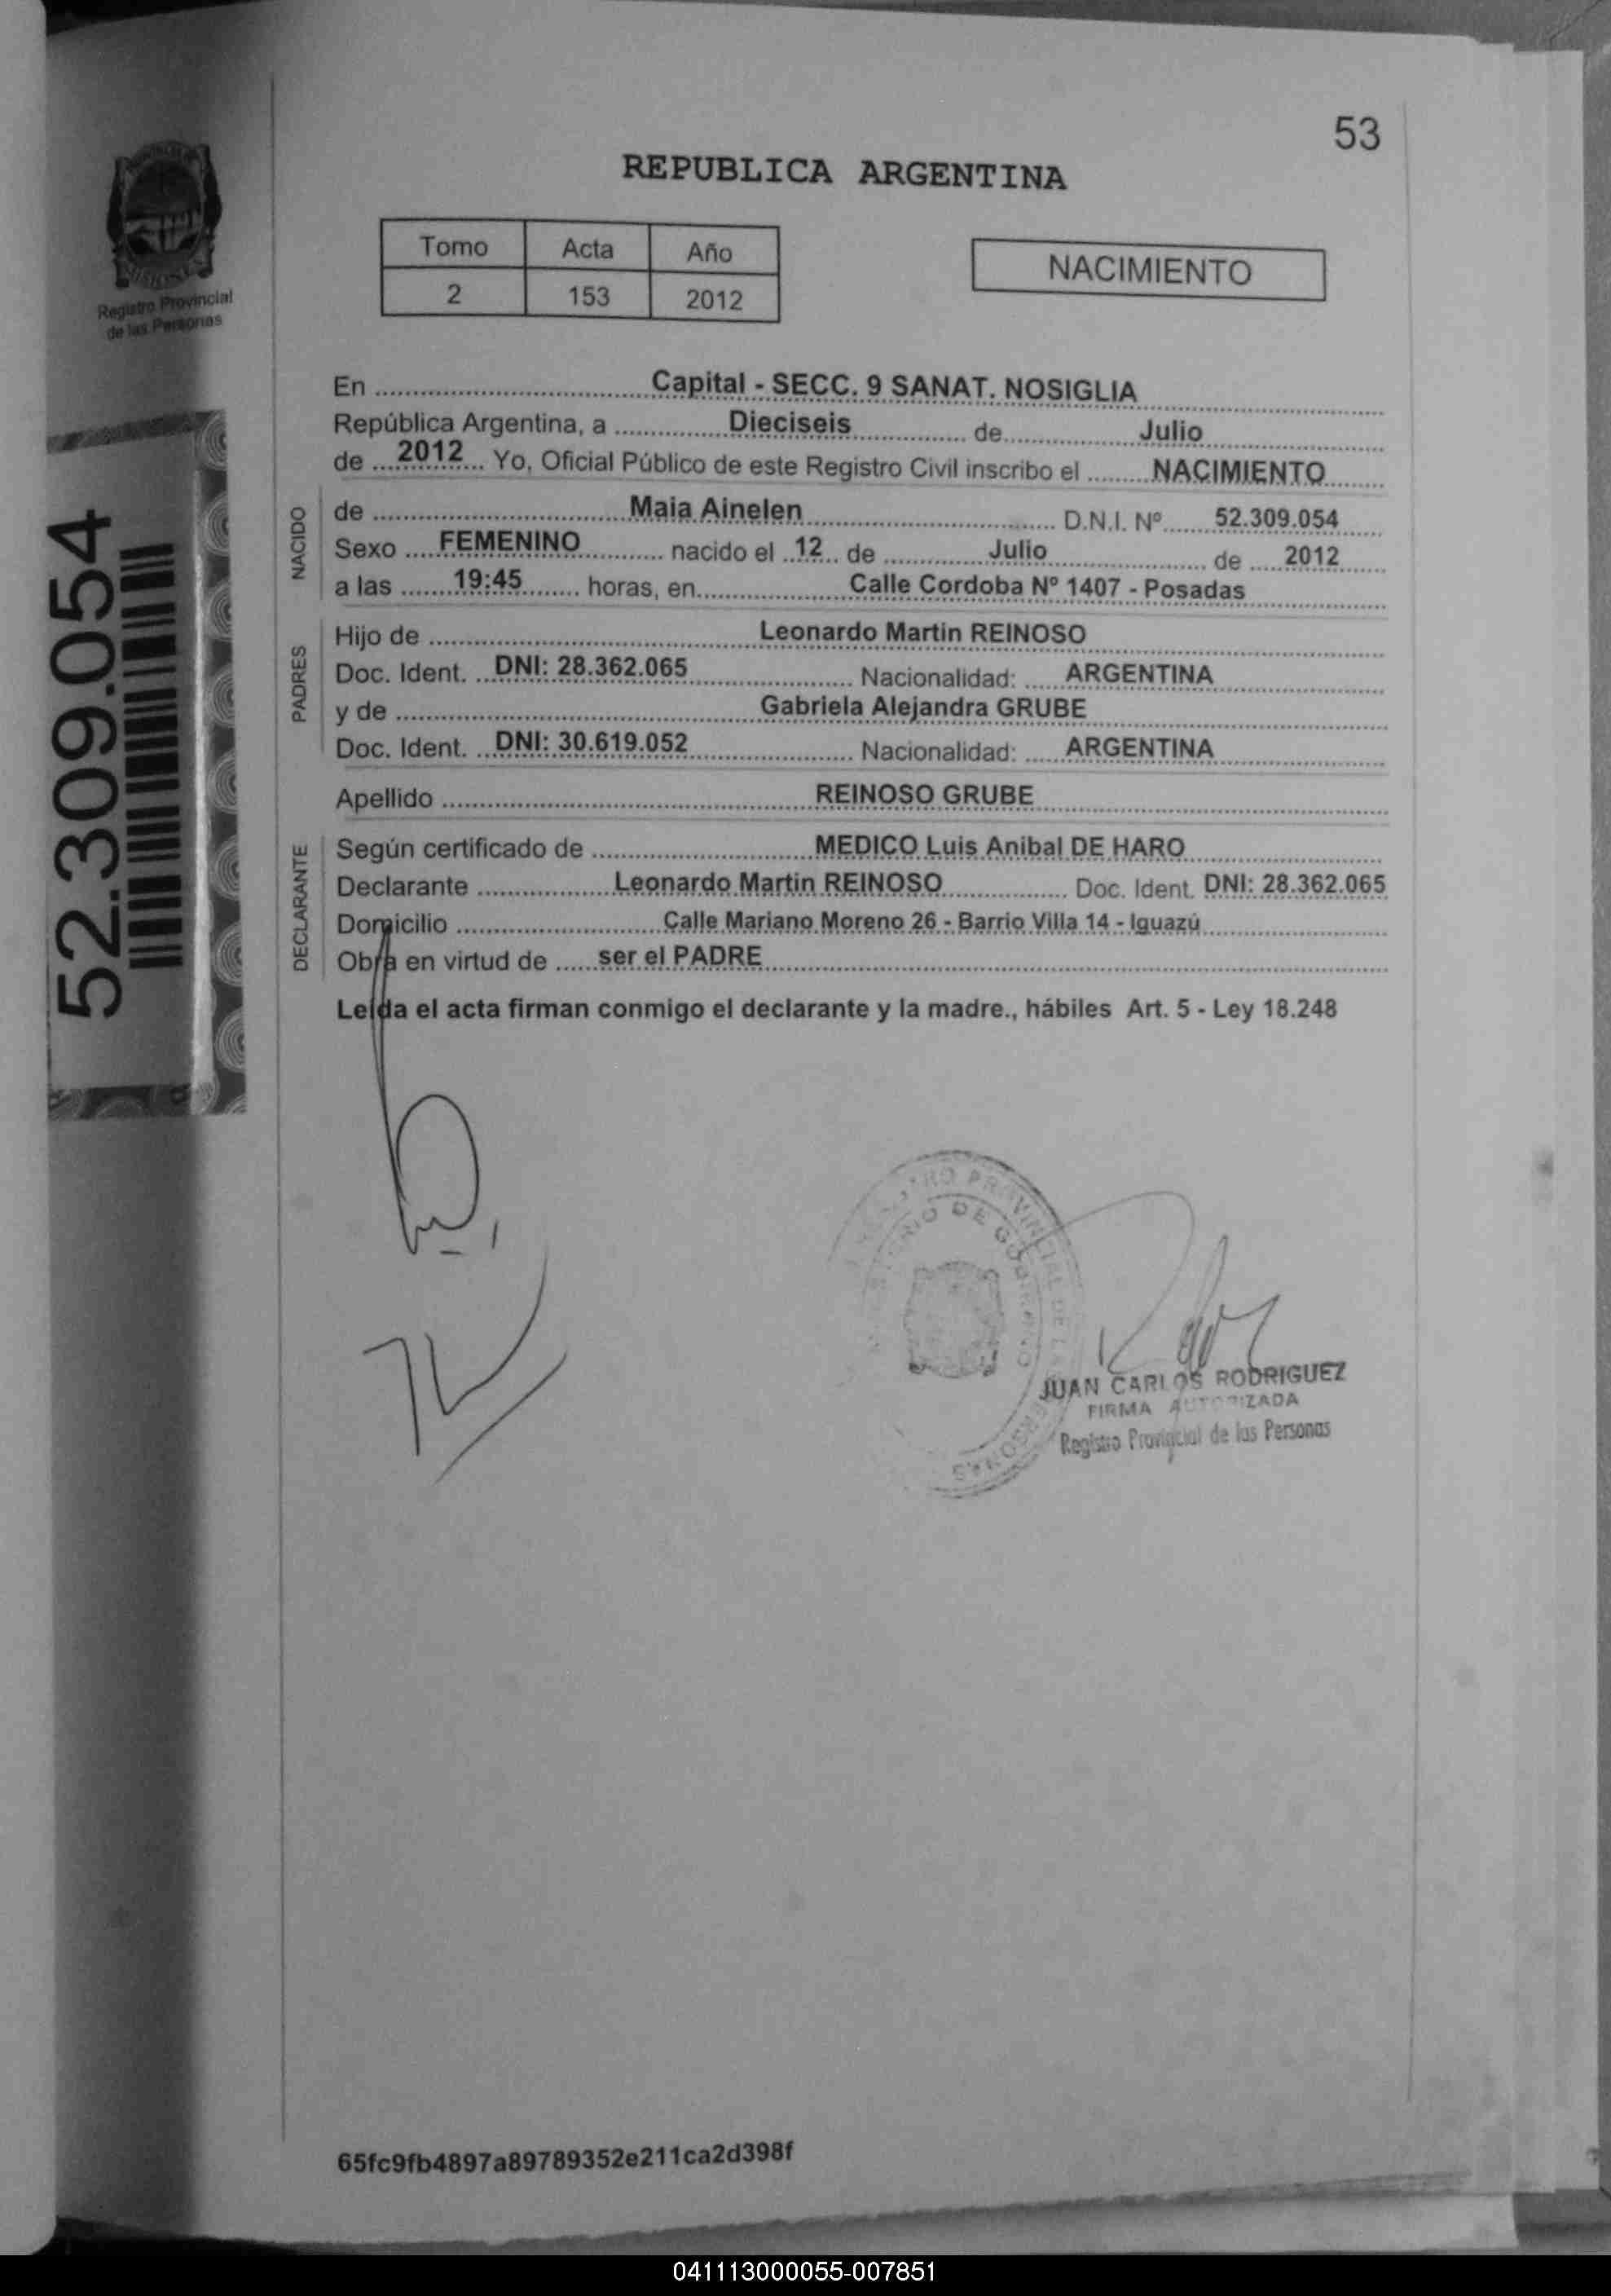 53
REPUBLICA ARGENTINA
Tomo Acta Año
2 153 2012
NACIMIENTO
Registro Provincial
de las Personas
52.309.054
En Capital - SECC. 9 SANAT. NOSIGLIA
República Argentina, a Dieciseis de Julio
de 2012 Yo, Oficial Público de este Registro Civil inscribo el NACIMIENTO
NACIDO
de Maia Ainelen D.N.I. Nº 52.309.054
Sexo FEMENINO nacido el 12 de Julio de 2012
a las 19:45 horas, en Calle Cordoba Nº 1407 - Posadas
PADRES
Hijo de Leonardo Martin REINOSO
Doc. Ident. DNI: 28.362.065 Nacionalidad: ARGENTINA
y de Gabriela Alejandra GRUBE
Doc. Ident. DNI: 30.619.052 Nacionalidad: ARGENTINA
Apellido REINOSO GRUBE
DECLARANTE
Según certificado de MEDICO Luis Anibal DE HARO
Declarante Leonardo Martin REINOSO Doc. Ident. DNI: 28.362.065
Domicilio Calle Mariano Moreno 26 - Barrio Villa 14 - Iguazú
Obra en virtud de ser el PADRE
Leída el acta firman conmigo el declarante y la madre., hábiles Art. 5 - Ley 18.248
JUAN CARLOS RODRIGUEZ
FIRMA AUTORIZADA
Registro Provincial de las Personas
65fc9fb4897a89789352e211ca2d398f
041113000055-007851